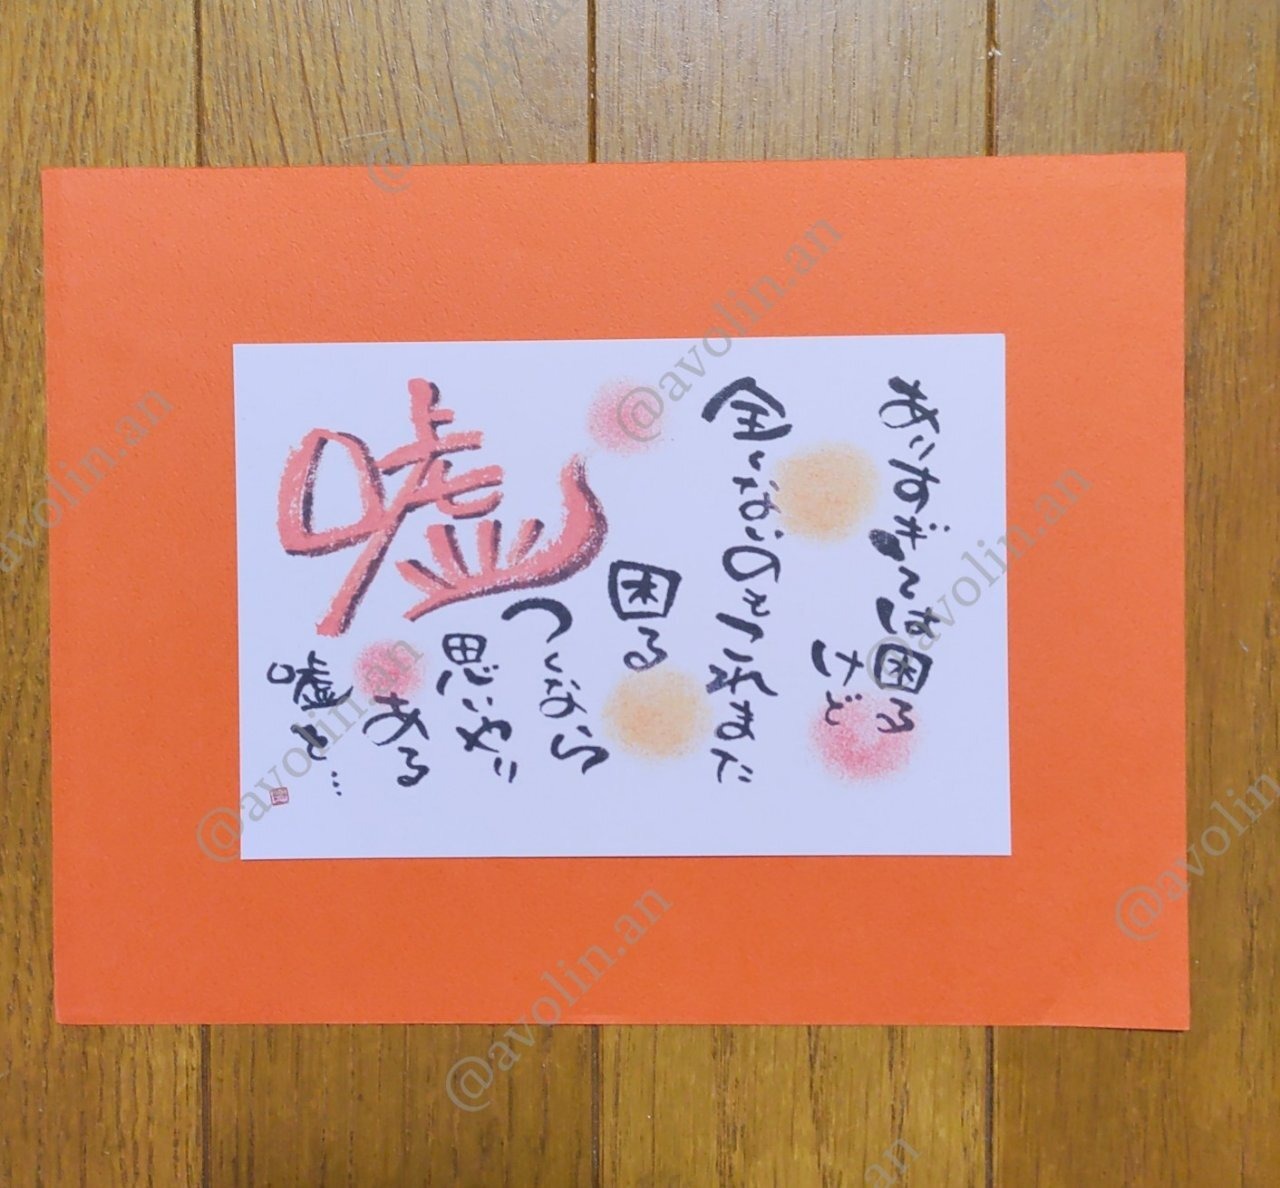 ありすぎては困る
けど
全くないのもこれまた
困る
嘘
つくなら
思いやり
ある
嘘を…
@avolin.an
@avolin.an
@avolin.an
@avolin.an
@avolin.an
@avolin.an